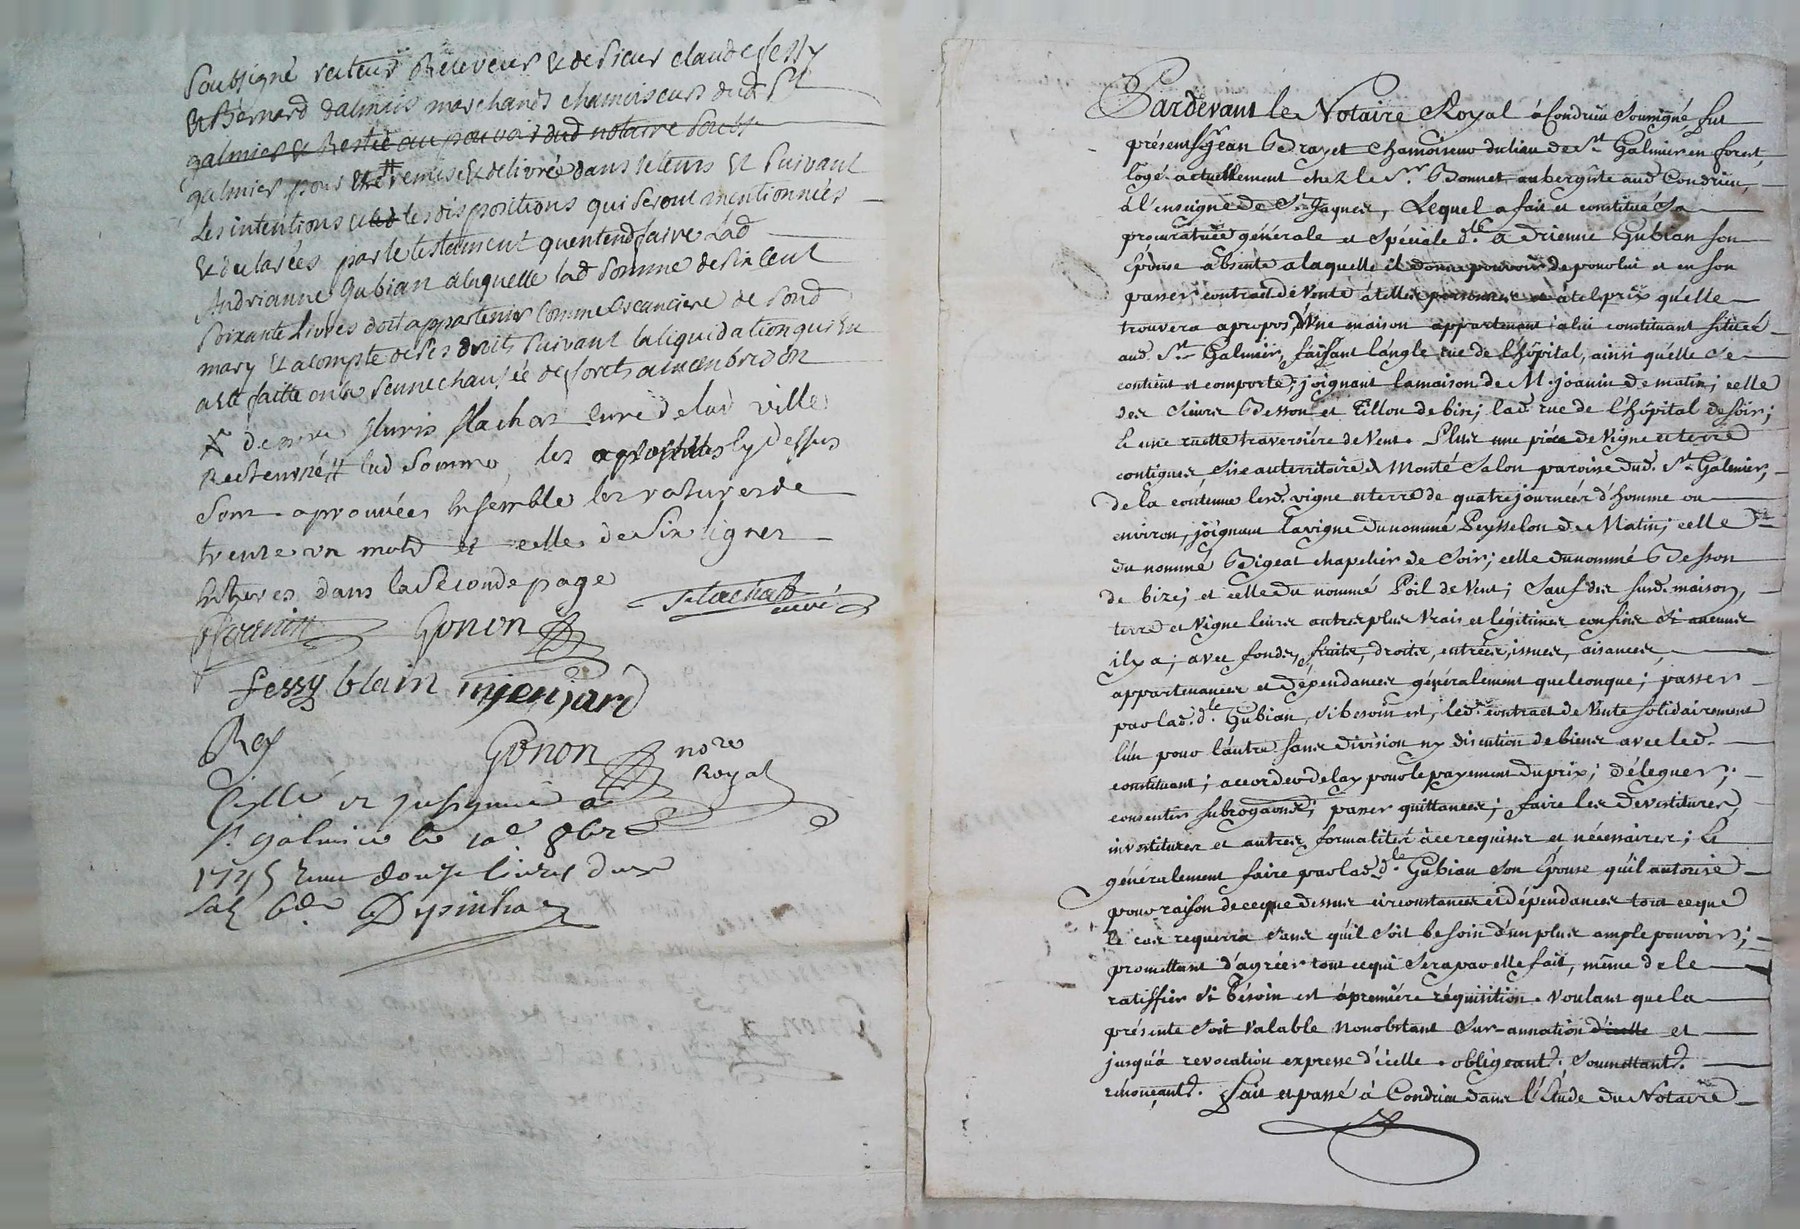 Soubsigné recteur Receveur & de Sieur claude fessy
& Bernard dalmais marchands chamoiseurs dud St
galmier & Resté au pouvoir dud notaire Soubs
galmier pour estre # remise & delivrée dans le tems & Suivant
Les intentions & les dispositions qui Seront mentionnées
& declarées par le testament quentend faire Lad
Andrianne Gubian a laquelle lad Somme de Six Cent
Soixante Livres doit appartenir Comme creanciere de Sond
mary & acompte de Ses droits Suivant la liquidation qui en
a esté faitte en la Sennechaussée de forests a montbrison
flachat curé de lad ville
# lad Somme, les apostilles cy dessus
Sont aprouvées Ensemble les ratures de
trente un mots et celle de Six lignes
Entieres dans la Seconde page
flachat curé
Gonon
fessy blain
Rey Gonon nore Royal
Collé et
St galmier le 10e 8bre
1745 Reçu douze livres
Pardevant le Notaire Royal à Condrieu Soussigné fut
présent Sr. Jean Brayet Chamoiseur du lieu de St. Galmier en forest,
logé actuellement chez le Sr. Bonnet aubergiste aud. Condrieu,
à l'enseigne de St. Jaques, Lequel a fait et constitué Sa
procuratrice générale et Spéciale dlle. adrienne Gubian Son
Epouse absente a laquelle il donne pouvoir de pour lui et en Son
passer contract de Vente à telles personnes et à tel prix qu'elle
trouvera apropos, d'Une maison appartenant a lui constituant Située
aud. St. Galmier, faisant l'angle rue de l'hôpital, ainsi qu'elle Se
contient et comporte; joignant la maison de M. joanin de matin; celle
des Sieurs Besson et Tillon de bize; lad. rue de l'hôpital de Soir;
Et une ruette traversiére de Vent. Plus une piéce de Vigne et terre
contigues, Sise au territoire de Monté Salon paroisse dud. St. Galmier,
de la contenue lesd. vigne et terre de quatre journées d'homme ou
environ, joignant la vigne du nommé Peysselon de Matin; celle
du nommé Bigeat chapelier de Soir; celle du nommé Besson
de bize; et celle du nommé Poil de Vent; Sauf des Susd. maison,
terre et Vigne leurs autres plus Vrais et légitimes confins Si aucuns
il y a; avec fonds, fruits, droits, entrées, issues, aisances,
appartenances et dépendances généralement quelconque; passer
par lad. dlle. Gubian, Si besoin est, led. contract de Vente Solidairement
l'un pour l'autre Sans division ny discution de biens avec led.
constituant; accorder delay pour le payement du prix; déleguer;
consentir Subrogations; passer quittances; faire les devestitures
investitures et autres formalités à ce requises et nécessaires; Et
généralement faire par lad. dlle. Gubian Son Epouse qu'il autorise
pour raison de ce que dessus circonstances et dépendances tout ce que
le cas requerra Sans qu'il Soit besoin d'un plus ample pouvoir;
promettant d'agréer tout ce qui Sera par elle fait, même de le
ratiffier Si besoin est à premiére réquisition. Voulant que la
présente Soit Valable nonobstant Sur-annation d'icelle et
jusqu'à revocation expresse d'icelle. obligeant. Soumettant.
rénonçant. Fait et passé à Condrieu dans l'étude du Notaire